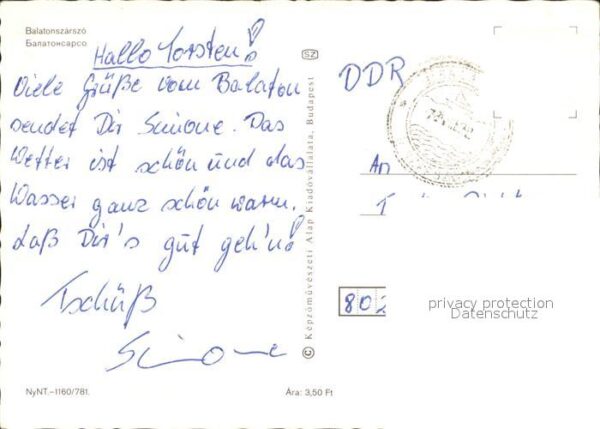 Balatonszárszó
Балатонсарсо
Hallo Torsten!
Viele Grüße vom Balaton
sendet Dir Simone. Das
Wetter ist schön und das
Wasser ganz schön warm.
Laß Dir's gut geh'n!
Tschüß
Simone
NyNT.–1160/781.
Ára: 3,50 Ft
SZ
© Képzőművészeti Alap Kiadóvállalata, Budapest
DDR
An
802
privacy protection
Datenschutz